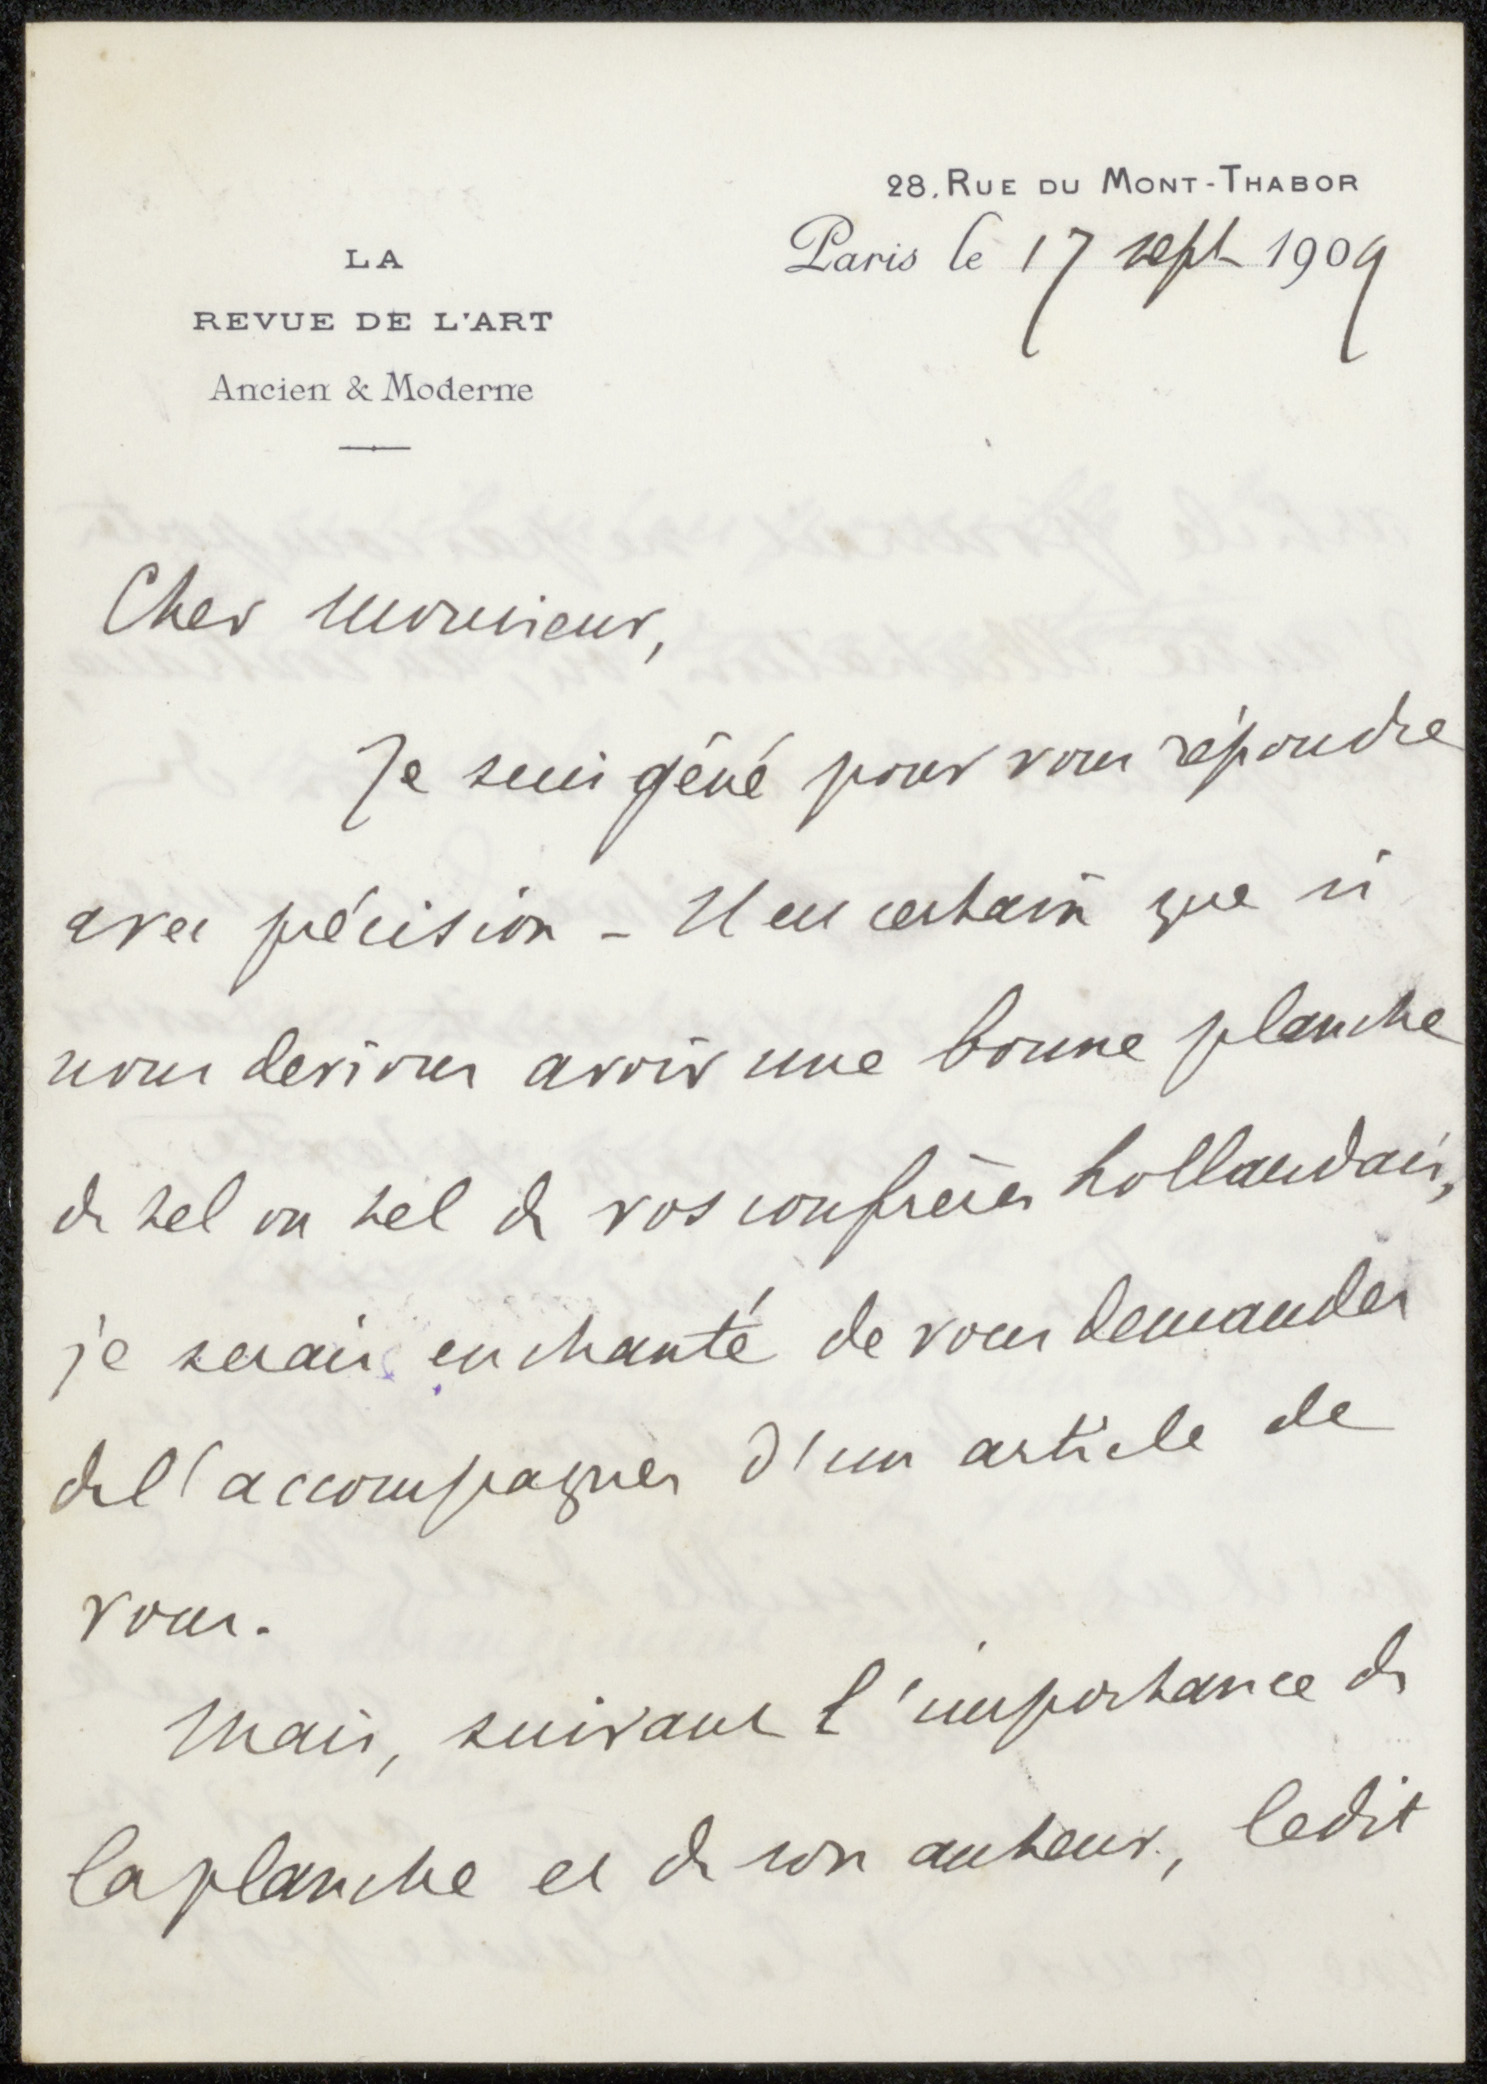 28. RUE DU MONT-THABOR
Paris le 17 sept 1909
LA
REVUE DE L'ART
Ancien & Moderne
Cher Monsieur,
Je suis gêné pour vous répondre
avec précision - Il est certain que si
nous devions avoir une bonne planche
de tel ou tel de vos confrères hollandais,
je serais enchanté de vous demander
de l'accompagner d'un article de
vous.
Mais, suivant l'importance de
la planche et de son auteur, ledit